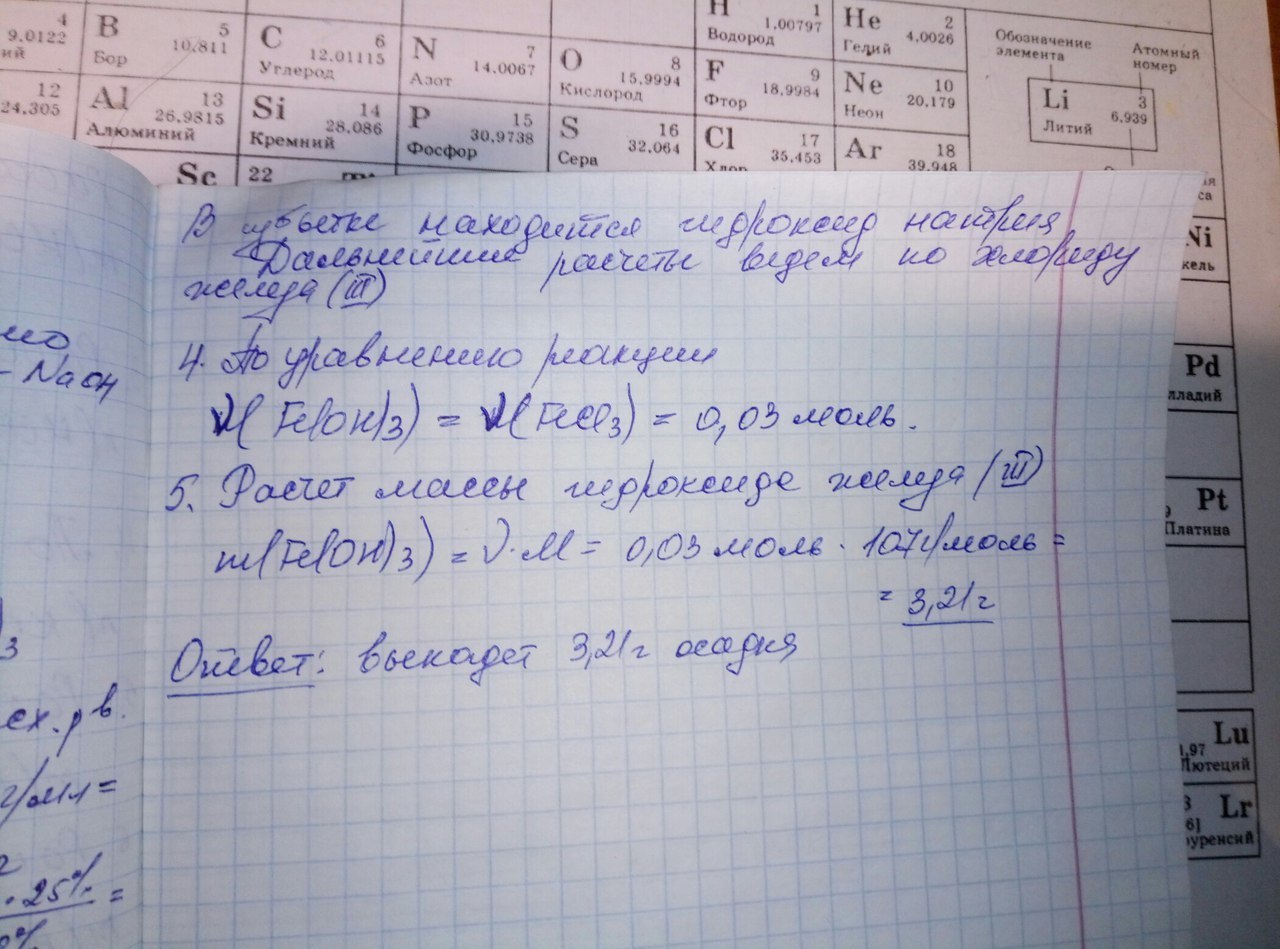 4
9.0122
ий
B 5
10.811
Бор
C 6
12.01115
Углерод
N 7
14.0067
Азот
O 8
15.9994
Кислород
H 1
1.00797
Водород
F 9
18.9984
Фтор
He 2
4.0026
Гелий
Ne 10
20.179
Неон
Обозначение элемента
Атомный номер
Li 3
6,939
Литий
12
24.305
Al 13
26.9815
Алюминий
Si 14
28.086
Кремний
P 15
30,9738
Фосфор
S 16
32.064
Сера
Cl 17
35.453
Хлор
Ar 18
39.948
Sc
22
са
Ni
кель
Pd
лладий
Pt
Платина
Lu
1,97
Лютеций
Lr
6]
уренсий
- NaOH
3
ех. р в.
г/мл =
. 25% =
В избытке находится гидроксид натрия
Дальнейшие расчеты ведем по хлориду
железа (III)
4. По уравнению реакции
ν(Fe(OH)3) = ν(FeCl3) = 0,03 моль.
5. Расчет массы гидроксида железа (III)
m(Fe(OH)3) = ν · M = 0,03 моль · 107 г/моль =
= 3,21 г
Ответ: выпадет 3,21 г осадка